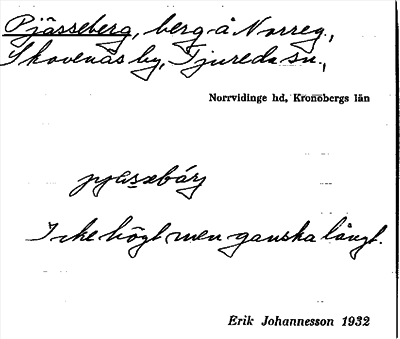 Pjässeberg, berg å Norreg.,
Skovenäs by, Tjureda sn.,
Norrvidinge hd, Kronobergs län
pjæsebárj
Icke högt men ganska långt.
Erik Johannesson 1932